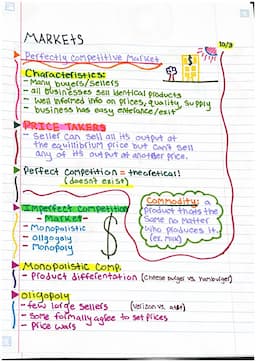 MARKETS
10/3
Perfectly Competitive Market
Characteristics:
- Many buyers/sellers
- all businesses sell identical products
- Well informed info on prices, quality, supply
- business has easy enterance/exit
PRICE TAKERS
- Seller can sell all its output
at the equilibrium price but can't sell
any of its output at another price.
Perfect Competition = theoretical!
(doesn't exist)
Imperfect Competition
Market
- Monopolistic
- Oligopoly
- Monopoly
Commodity: a
product thats the
same no matter
who produces it.
(ex. milk)
Monopolistic Comp.
- Product differentiation (Cheese burger vs. hamburger)
Oligopoly
- few large sellers (Verizon vs. at&t)
- Some formally agree to set prices
- Price wars